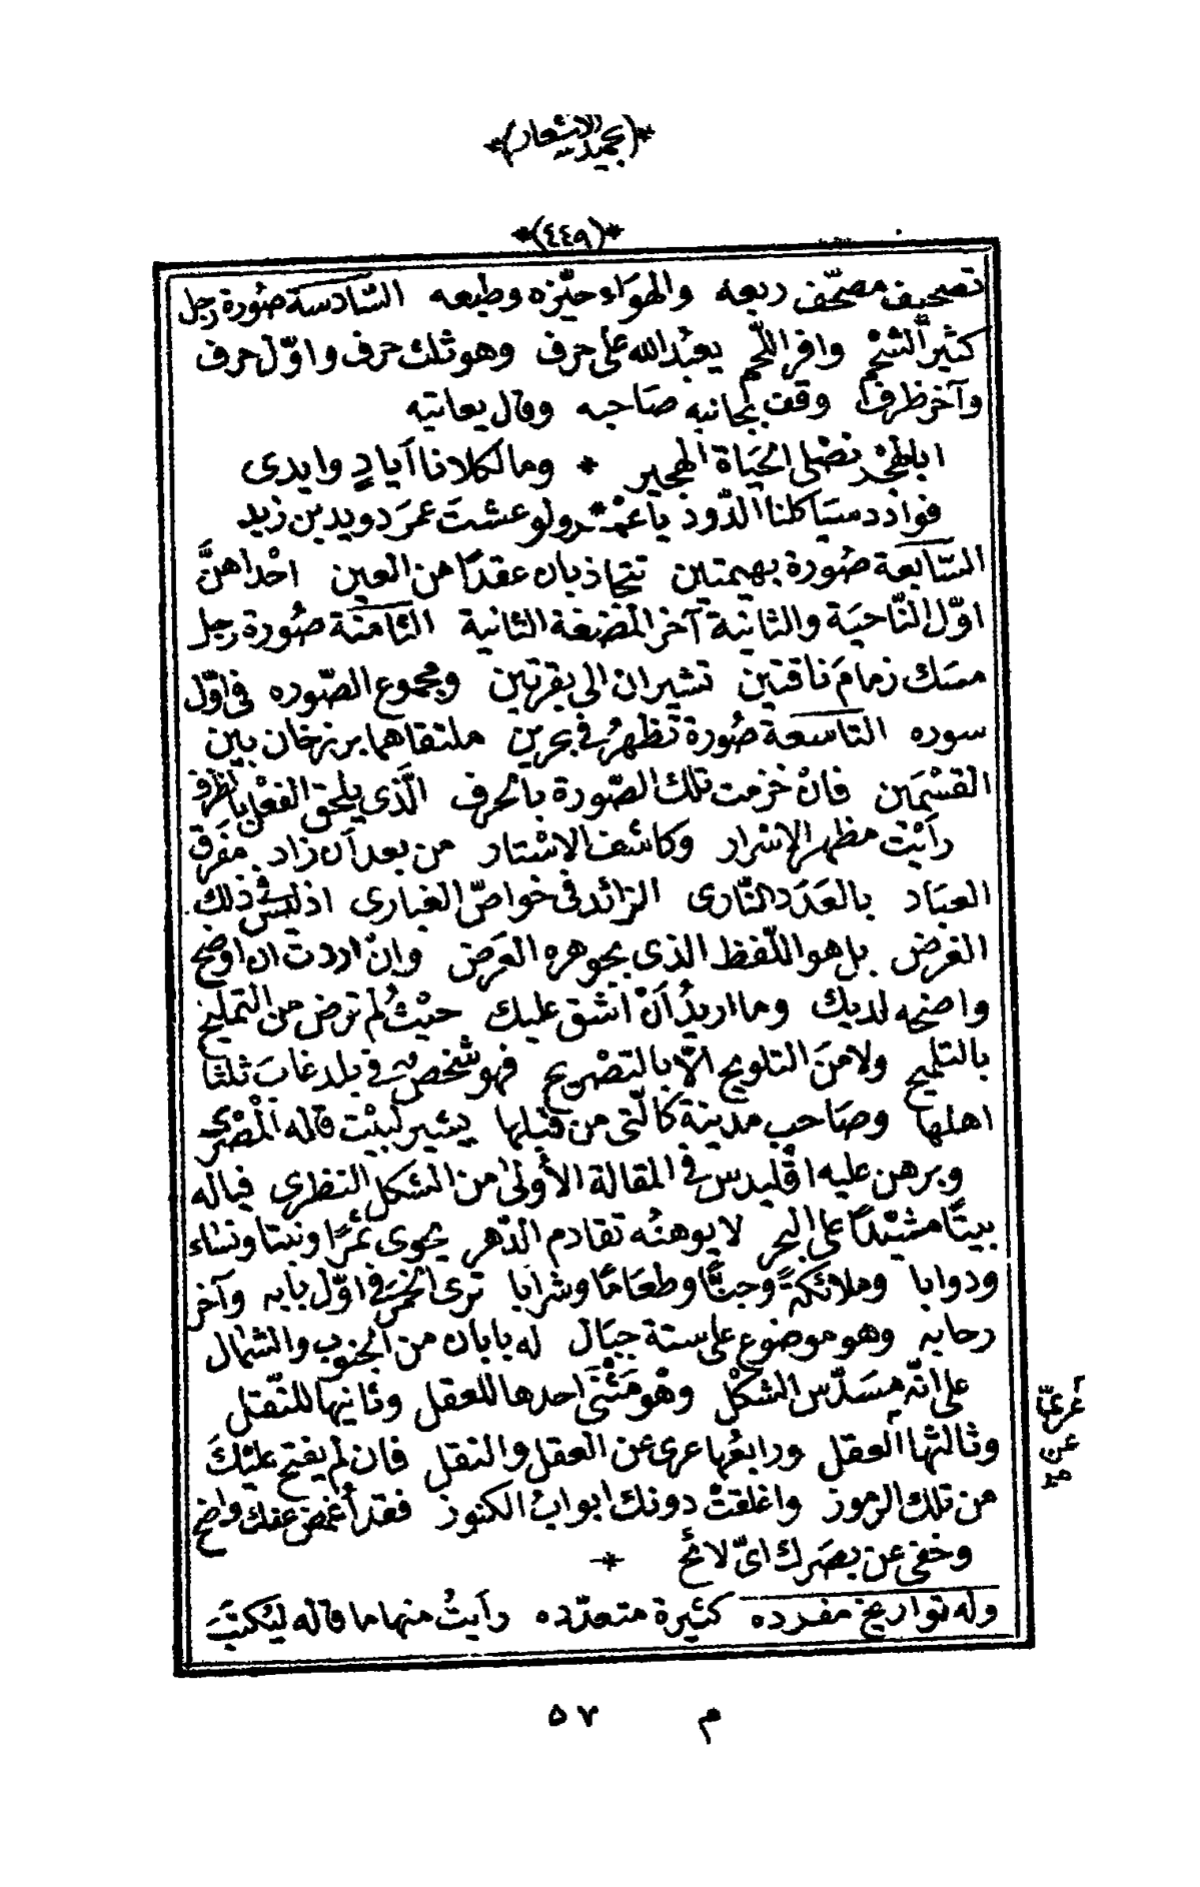 *(عبد الاشعار)*
*(٤٤٩)*
تصحيف مصحّف ربعه والهوَاء حيّزه وطبعه السّادسة صُورة رجل
كثير الشحْم وافر اللّحم يعبُد الله على حرف وهو ثلث حرف واوّل حرف
وآخر ظرف وقف بجانبه صَاحبه وقال يعاتبه
اباطحْر نصْلى الحيَاة الهجير * وما لكلانا أيادٍ وايدى
فواذد سيَاكلنا الدّود ياعمْـ * ـرو لو عشتَ عمرَ دويد بن زيد
السّابعة صُورة بهيمتين تتجاذبان عقدًا من العين احْداهنَّ
اوّل النّاحيَة والثانية آخر المضغة الثانية الثامنة صُورة رجل
مسَك زمامَ ناقتين تشيران الى بقرتين ومجموع الصّوره فى اوّل
سوره التاسعة صُورة تظهرُ فى بحرين ملتقاهما برزخان بين
القسْمَين فانْ خزمت تلك الصّورة بالحرف الّذى يلحق الفعْل بالظرف
رأيْتَ مظهر الاسْرار وكاشف الاسْتار من بعد أن زاد مَفرَق
العبَاد بالعَدَد النّارى الزائد فى خواصّ الغبارى اذ ليسَ فى ذلك
الغرض بل هو اللّفظ الذى بجوهره العَرض وانْ اردت ان اوضح
واضحه لديك وما اريدُ أنْ اشق عليك حيْثُ لم ترض من التمليخ
بالتلميح ولا منَ التلويح الّا بالتصْريح فهو شخص فى بلد غابَ ثلثا
اهلها وصَاحب مدينة كالّتى من قبْلها يشير لبيْت قاله المصْرى
وبرهن عليه اقْليدس فى المقالة الأولىٰ من الشكل النظرى فياله
بيتًا مشيْدًا على البحر لا يوهنُه تقادم الدّهر يحوى ثمرًا ونبتا ونساء
ودوابا وملائكةً وجنًّا وطعَامًا وشرابا ترى الخمرَ فى اوّل بابه وآخر
رحابه وهو موضوع على ستة جبَال له بابان من الجنوب والشمٰال
على انّه مسَدّس الشكْل وهْو مَثْنَى احدها للعقل وثانيها للنّقل
وثالثها العقل ورابعُها عرى عن العقل والنقل فان لم يفتح عليْكَ
من تلك الرموز واغلقتْ دونك ابوابُ الكنوز فقد أغمض عنك واضح
وخفى عن بصَرك اىّ لائح *
وله تواريخ مفرده كثيرة متعدّده رأيتُ منها ما قاله ليُكتبَ
م ٥٧